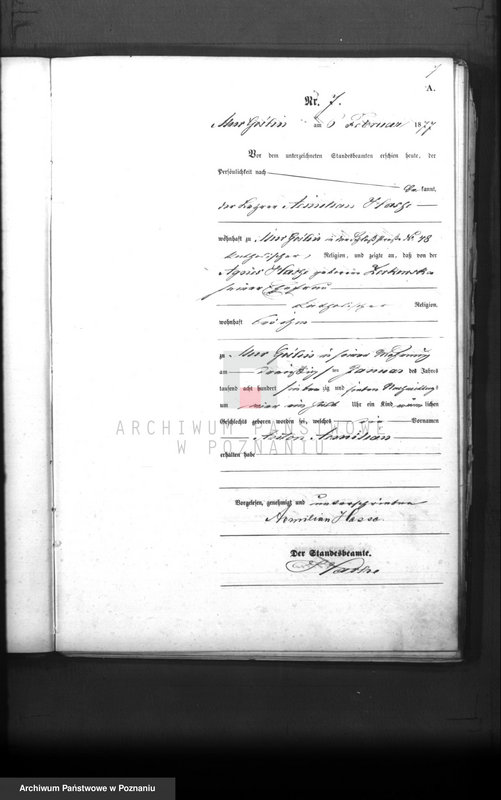 A.
Nr. 7.
Mur Goslin am 6 Februar 1877
Vor dem unterzeichneten Standesbeamten erschien heute, der
Persönlichkeit nach
kannt,
der Lehrer Aemilian Hasse
wohnhaft zu Mur Goslin in der Schloßstraße No 48
katholischer Religion, und zeigte an, daß von der
Agnes Hasse geborene
seiner Ehefrau
katholischer Religion,
wohnhaft bei ihm
zu Mur Goslin in seiner Wohnung
am des Januar des Jahres
tausend acht hundert siebenzig und sieben Nachmittags
um vier ein halb Uhr ein Kind männlichen
Geschlechts geboren worden sei, welches Vornamen
Anton Aemilian
erhalten habe
Vorgelesen, genehmigt und unterschrieben
Aemilian Hasse
Der Standesbeamte.
ARCHIWUM PAŃSTWOWE
W POZNANIU
Archiwum Państwowe w Poznaniu